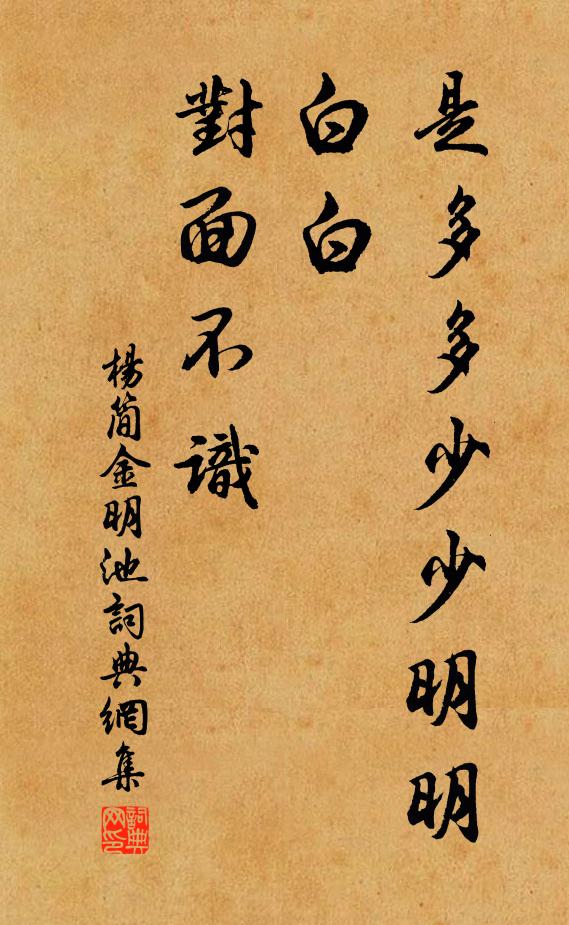 是多多少少明明
白白
對面不識
楊简金明池詞典網集
詞典网印